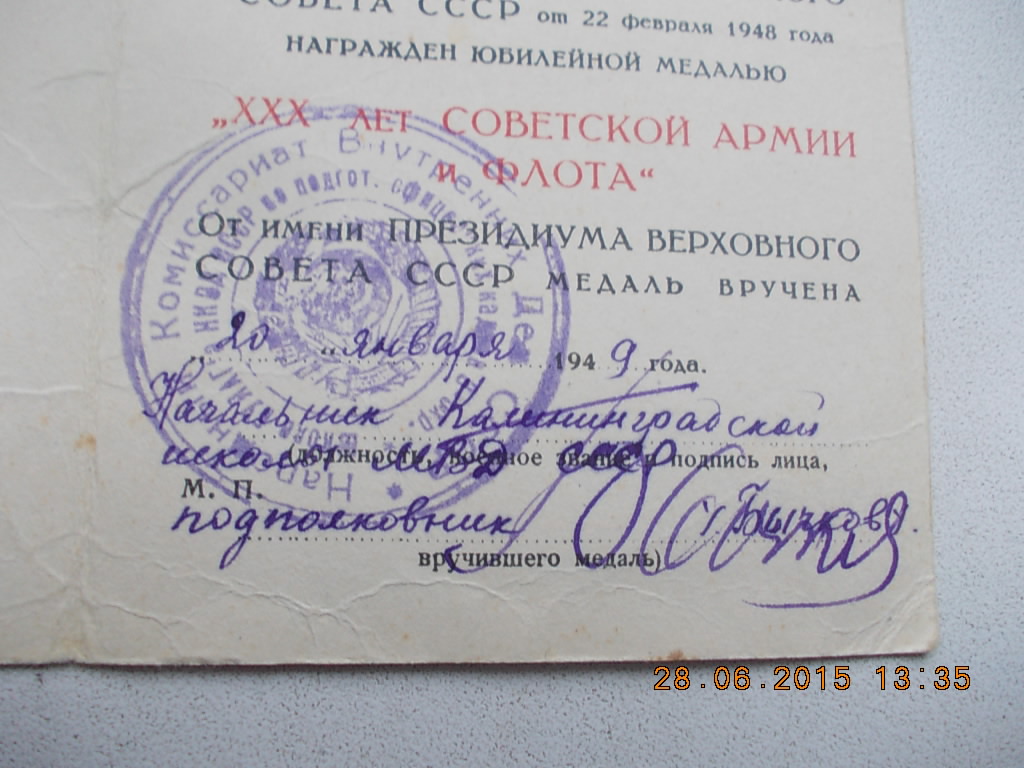 СОВЕТА СССР от 22 февраля 1948 года
НАГРАЖДЕН ЮБИЛЕЙНОЙ МЕДАЛЬЮ
„XXX ЛЕТ СОВЕТСКОЙ АРМИИ
и ФЛОТА“
От имени ПРЕЗИДИУМА ВЕРХОВНОГО
СОВЕТА СССР МЕДАЛЬ ВРУЧЕНА
„20„ января 1949 года.
Начальник Калининградской
школы МВД СССР
(должность, военное звание и подпись лица,
М. П.
подполковник
вручившего медаль)
Комиссариат Внутренних Дел
по подгот.
28.06.2015 13:35